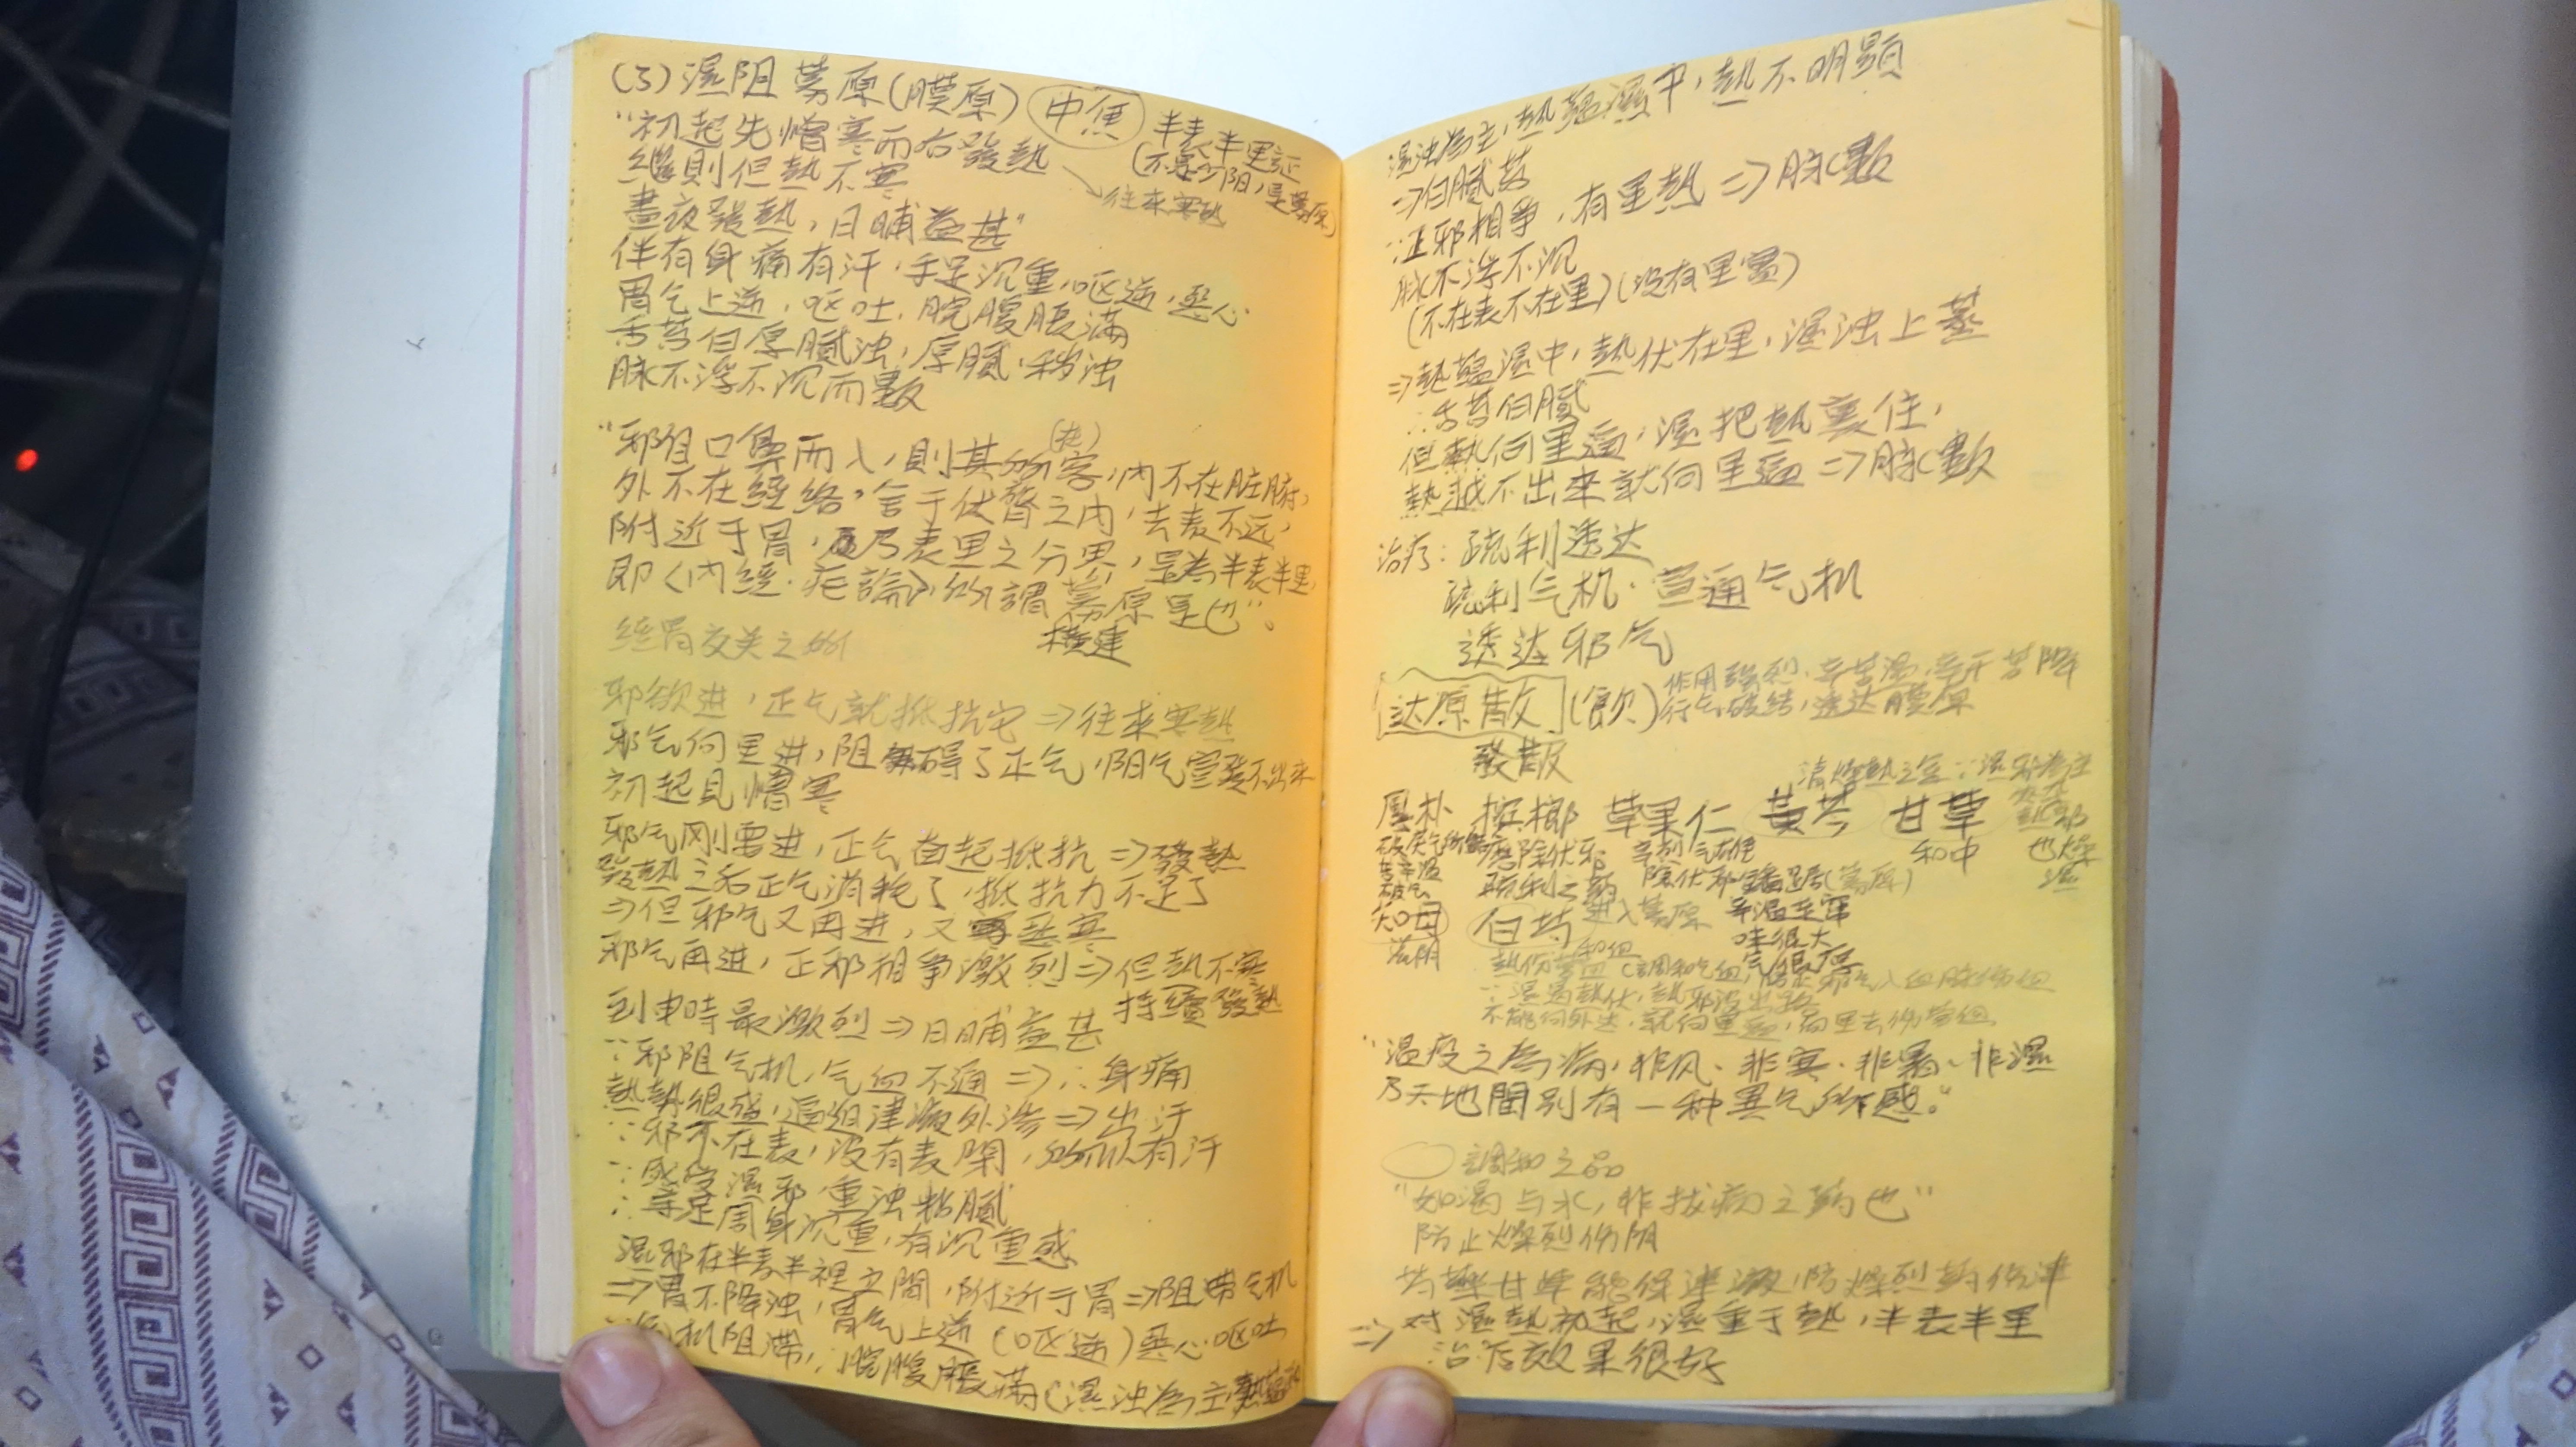 (3) 濕阻募原(膜原) 中焦
半表半里証
(不是少阳,是募原)
"初起先憎寒而后發熱
→往来寒熱
繼則但熱不寒
晝夜發熱,日晡益甚"
伴有身痛有汗,手足沉重,呕逆,恶心
胃气上逆,呕吐,脘腹脹滿
舌苔白厚膩浊,厚膩,秽浊
脉不浮不沉而數
"邪自口鼻而入,則其所客,内不在脏腑,
外不在經絡,舍于伏膂之内,去表不远,
附近于胃,乃表里之分界,是為半表半里,
即《内經·疟論》所謂募原是也"。
横連
經胃交关之所
邪欲进,正气就抵抗它⇒往来寒熱
邪气向里进,阻碍了正气,阳气宣發不出来
初起見憎寒
邪气刚要进,正气奋起抵抗⇒發熱
發熱之后正气消耗了,抵抗力不足了
⇒但邪气又再进,又恶寒
邪气再进,正邪相争激烈⇒但熱不寒
持續發熱
到申時最激烈⇒日晡益甚
∵邪阻气机,气血不通⇒∴身痛
熱勢很盛,逼迫津液外渗⇒出汗
∵邪不在表,没有表閉,所以有汗
∵感受濕邪,重浊粘膩
∴手足周身沉重,有沉重感
濕邪在半表半裡之間,附近于胃⇒阻滞气机
⇒胃不降浊,胃气上逆(呕逆)恶心呕吐
机阻滞,∴脘腹脹滿(濕浊為主,
濕浊為主,熱蘊濕中,熱不明顯
⇒白膩苔
∵正邪相争,有里熱⇒脉數
脉不浮不沉
(不在表不在里)(没有里實)
⇒熱蘊濕中,熱伏在里,濕浊上蒸
∴舌苔白膩
但熱向里逼,濕把熱裹住,
熱越不出来就向里逼⇒脉數
治疗:疏利透达
疏利气机,宣通气机
透达邪气
达原散(飲)
作用強烈,辛苦温,辛开苦降
行气破结,透达膜原
發散
清燥熱之余∵濕邪為主
厚朴 槟榔 草果仁 黄芩 甘草
和中
也燥
濕
破戾气所結 磨除伏邪 辛烈气雄
苦辛温 疏利之药 除伏邪盤踞(募原)
破气
知母 白芍 进入募原 辛温至窜
滋阴 和血 味很大
∵濕遏熱伏,熱邪没出路
不能向外达,就向里逼,向里去伤营血
"温疫之為病,非风、非寒、非暑、非濕
乃天地間别有一种異气所感。"
調和之品
"如渴与水,非拔病之药也"
防止燥烈伤阴
芍藥甘草能保津液,防燥烈药伤津
⇒对濕熱初起,濕重于熱,半表半里
治疗效果很好